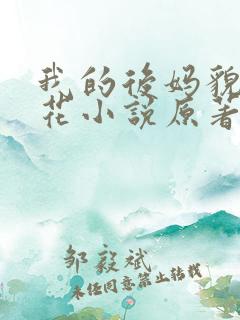 我的後妈貌
花小說原著
邹毅斌
未经同意禁止转载